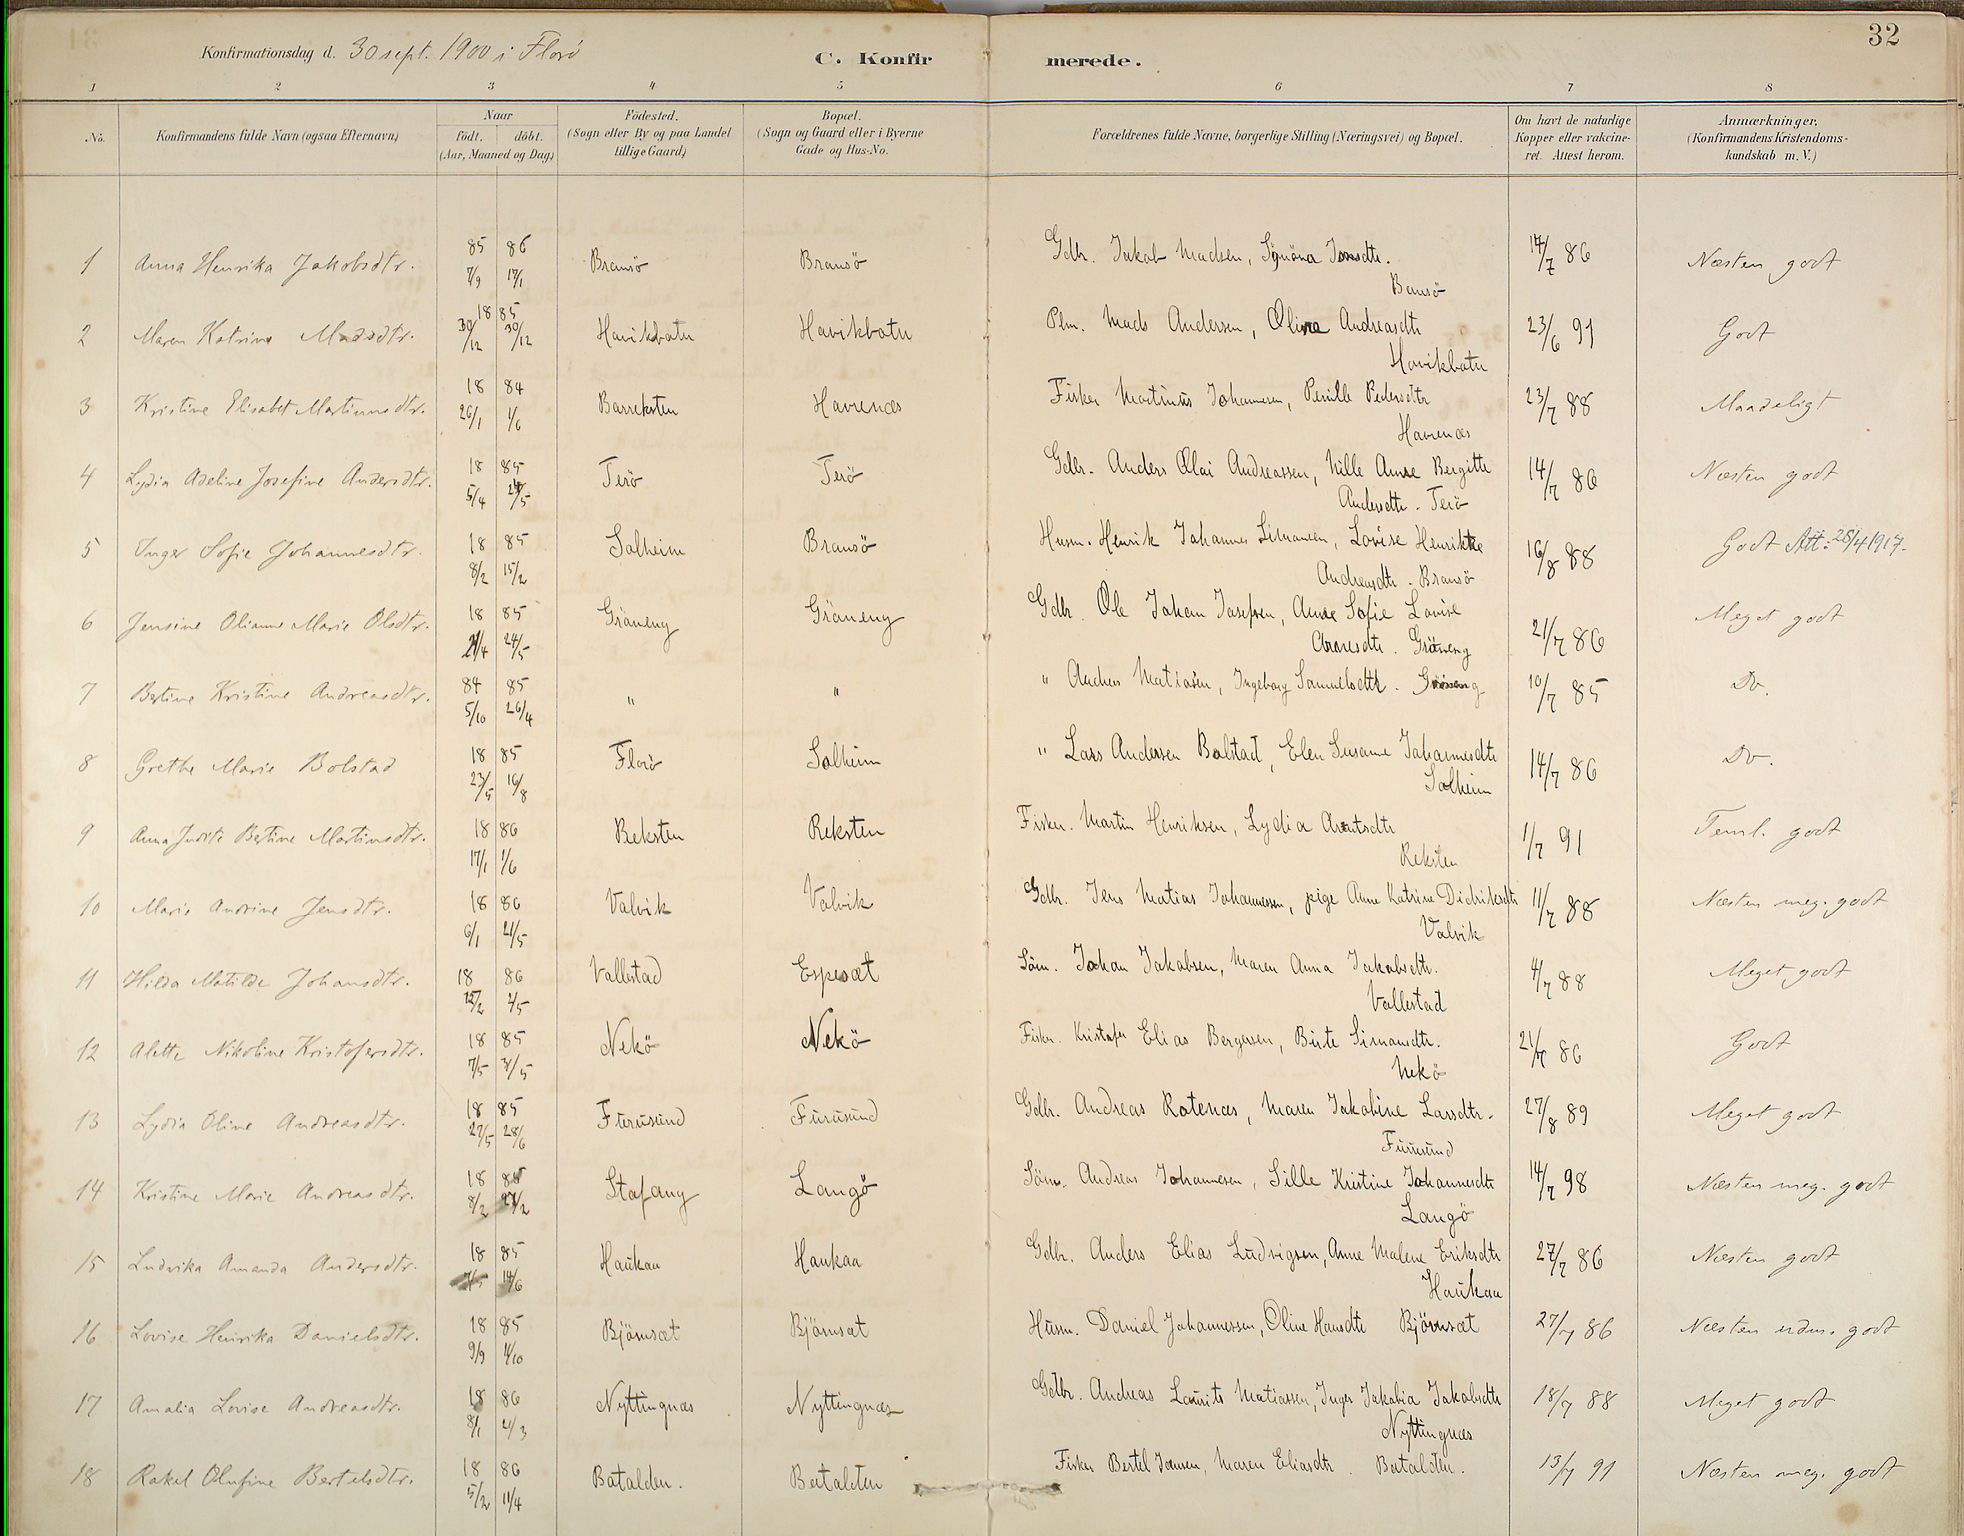 32
Konfirmationsdag d. 30 sept. 1900 i Florö
C. Konfirmerede.
1 2 3 4 5 6 7 8
No. Konfirmandens fulde Navn (ogsaa Efternavn) Naar Födt. döbt. (Aar, Maaned og Dag) Födested. (Sogn eller By og paa Landet tillige Gaard) Bopæl. (Sogn og Gaard eller i Byerne Gade og Hus-No. Forældrenes fulde Navne, borgerlige Stilling (Næringsvei) og Bopæl. Om havt de naturlige Kopper eller vakcineret. Attest herom. Anmærkninger. (Konfirmandens Kristendomskundskab m. V.)
1 Anna Henrika Jakobsdtr. 85 7/9 86 17/1 Bransö Bransö Gdbr. Jakob Madsen, Symöna Jonsdtr. 14/7 86 Næsten godt
2 Maren Katrine Madsdtr. 1885 30/12 30/12 Havikbotn Havikbotn Plm. Mads Andersen, Oline Andreasdtr Havikbotn 23/6 91 Godt
3 Kristine Elisabet Martinusdtr. 18 84 26/1 1/6 Barreksten Havrenæs Fisker Martinus Johannesen, Pernille Pedersdtr Havrenæs 23/7 88 Maadeligt
4 Lydia Adeline Josefine Andersdtr. 18 85 5/4 Terö Terö Gdbr. Anders Olai Andreassen, Nille Anne Bergitte Andersdtr. Terö 14/7 86 Næsten godt
5 Inger Sofie Johannesdtr. 18 85 8/2 15/2 Solheim Bransö Husm. Henrik Johannes Simonsen, Lovise Henrikke Andreasdtr. Bransö 16/8 88 Godt Att: 28/4 1917.
6 Jensine Olianne Marie Olsdtr. 18 85 21/4 24/5 Gröneng Gröneng Gdbr. Ole Johan Josefsen, Anne Sofie Lovise Arnesdtr. Gröneng 21/7 86 Meget godt
7 Bertine Kristine Andreasdtr. 84 85 5/10 26/4 " " " Andreas Matiasen, Ingeborg Samuelsdtr. Gröneng 10/7 85 Do.
8 Grethe Marie Bolstad 18 85 23/5 16/8 Florö Solheim " Lars Andersen Bolstad, Elen Susanne Johannesdtr Solheim 14/7 86 Do.
9 Anna Judite Bertine Martinsdtr. 18 86 17/1 1/6 Reksten Reksten Fisker. Martin Henriksen, Lydia Arntsdtr Reksten 1/7 91 Teml. godt
10 Marie Andrine Jensdtr. 18 86 6/1 21/5 Valvik Valvik Gdbr. Jens Matias Johannessen, pige Anne Katrine Didriksdtr Valvik 11/7 88 Næsten meg. godt
11 Hilda Matilde Johansdtr. 18 86 2/5 Vallestad Espesæt Söm. Johan Jakobsen, Maren Anna Jakobsdtr. Vallestad 4/7 88 Meget godt
12 Alette Nikoline Kristofersdtr. 18 85 7/5 31/5 Nekö Nekö Fisker. Kristofer Elias Bergersen, Birte Simonsdtr. Nekö 86 Godt
13 Lydia Oline Andreasdtr. 18 85 27/5 28/6 Furusund Furusund Gdbr. Andreas Rotenæs, Maren Jakobine Larsdtr. Furusund 27/8 89 Meget godt
14 Kristine Marie Andreasdtr. 18 85 8/2 Stafang Langö Söm. Andreas Johannesen, Sille Kristine Johannesdtr Langö 14/7 98 Næsten meg. godt
15 Ludvika Amanda Andersdtr. 18 85 7/5 14/6 Haukaa Haukaa Gdbr. Anders Elias Ludvigsen, Anne Malene Eriksdtr Haukaa 27/7 86 Næsten godt
16 Lovise Henrika Danielsdtr. 18 85 9/9 4/10 Björnsæt Björnsæt Husm. Daniel Johannessen, Oline Hansdtr Björnsæt 27/7 86 Næsten udm. godt
17 Amalia Lovise Andreasdtr. 18 86 8/1 21/3 Nyttingnæs Nyttingnæs Gdbr. Andreas Laurits Matiassen, Inger Jakobia Jakobsdtr Nyttingnæs 18/7 88 Meget godt
18 Rakel Olufine Bertelsdtr. 18 86 5/2 11/4 Batalden. Batalden Fisker Bertel Joensen, Maren Eliasdtr. Batalden. 13/7 91 Næsten meg. godt